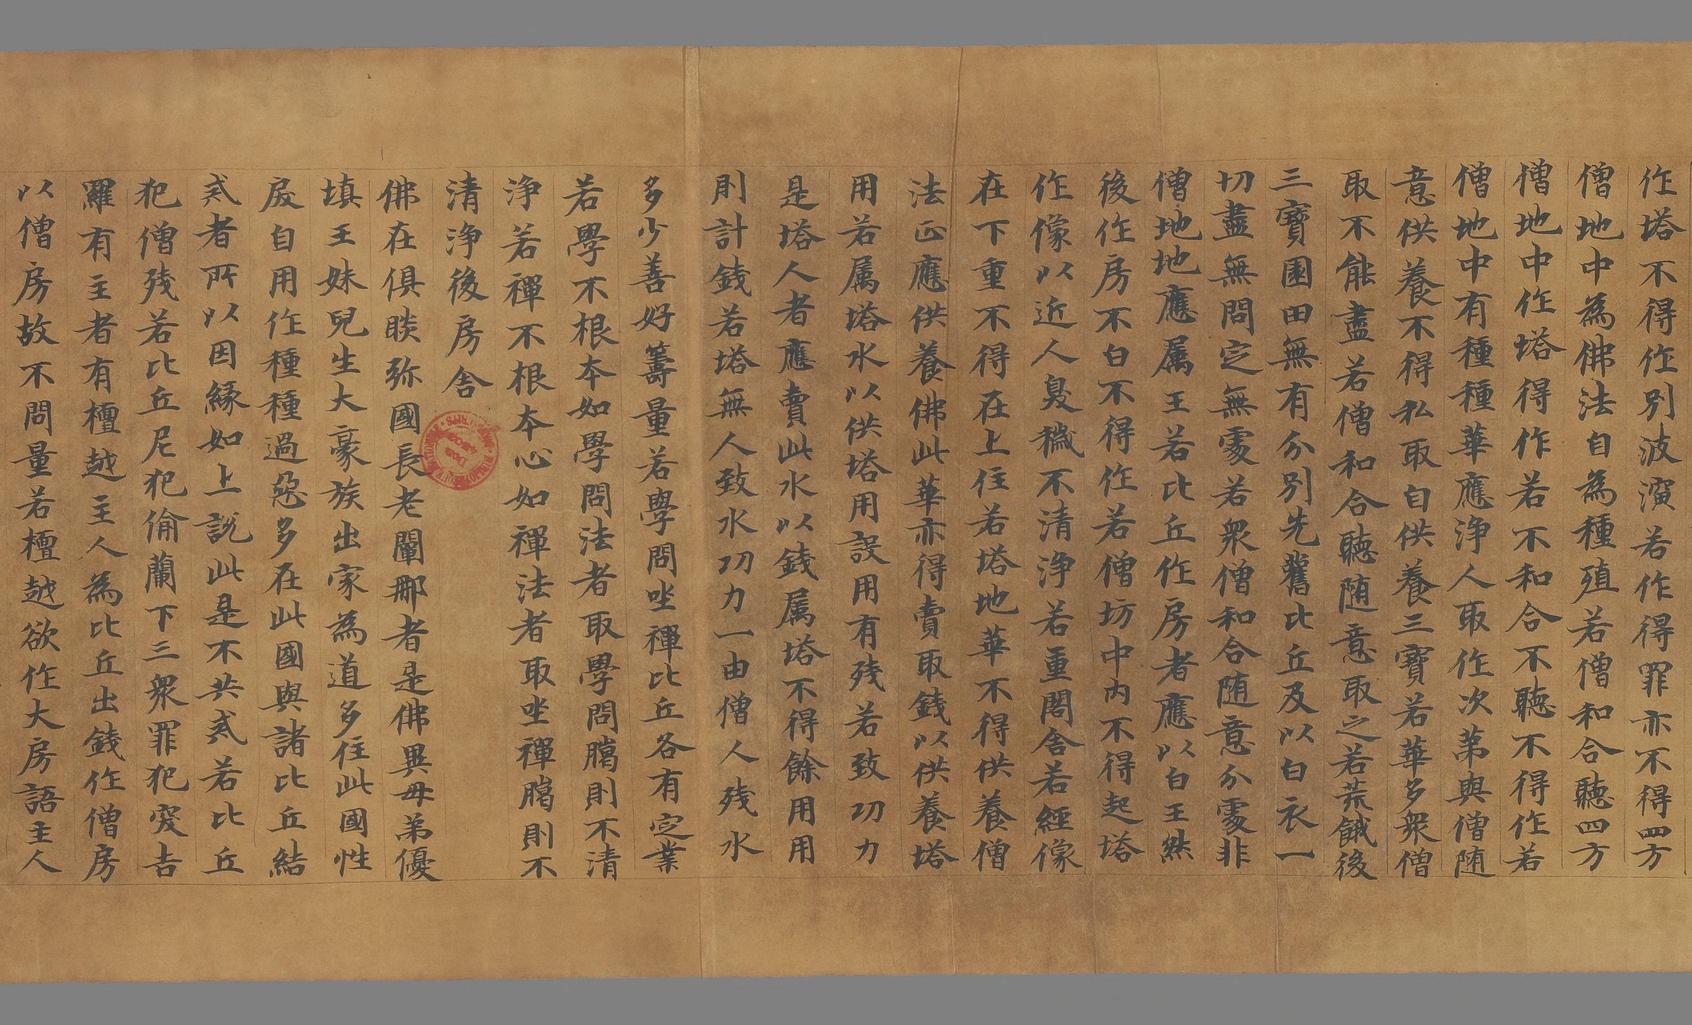 作塔不得作別波演若作得罪亦不得四方
僧地中為佛法自為種殖若僧和合聽四方
僧地中作塔得作若不和合不聽不得作若
僧地中有種種華應淨人取作次第與僧随
意供養不得私取自供養三寶若華多眾僧
取不能盡若僧和合聽随意取之若荒餓後
三寶園田無有分別先舊比丘及以白衣一
切盡無問定無處若眾僧和合随意分處非
僧地地應属王若比丘作房者應以白王然
後作房不白不得作若僧坊中內不得起塔
作像以近人臭穢不清淨若重閣舍若經像
在下重不得在上住若塔地華不得供養僧
法正應供養佛此華亦得賣取錢以供養塔
用若属塔水以供塔用設用有残若致功力
是塔人者應賣此水以錢属塔不得餘用用
則計錢若塔無人致水功力一由僧人残水
多少善好籌量若學問坐禪比丘各有定業
若學不根本如學問法者取學問﨟則不清
淨若禪不根本心如禪法者取坐禪﨟則不
清淨後房舍
佛在俱睒弥國長老闡那者是佛異母弟優
填王妹兒生大豪族出家為道多住此國性
戾自用作種種過惡多在此國與諸比丘結
戒者所以因緣如上說此是不共戒若比丘
犯僧残若比丘尼犯偷蘭下三眾罪犯突吉
羅有主者有檀越主人為比丘出錢作僧房
以僧房故不問量若檀越欲作大房語主人